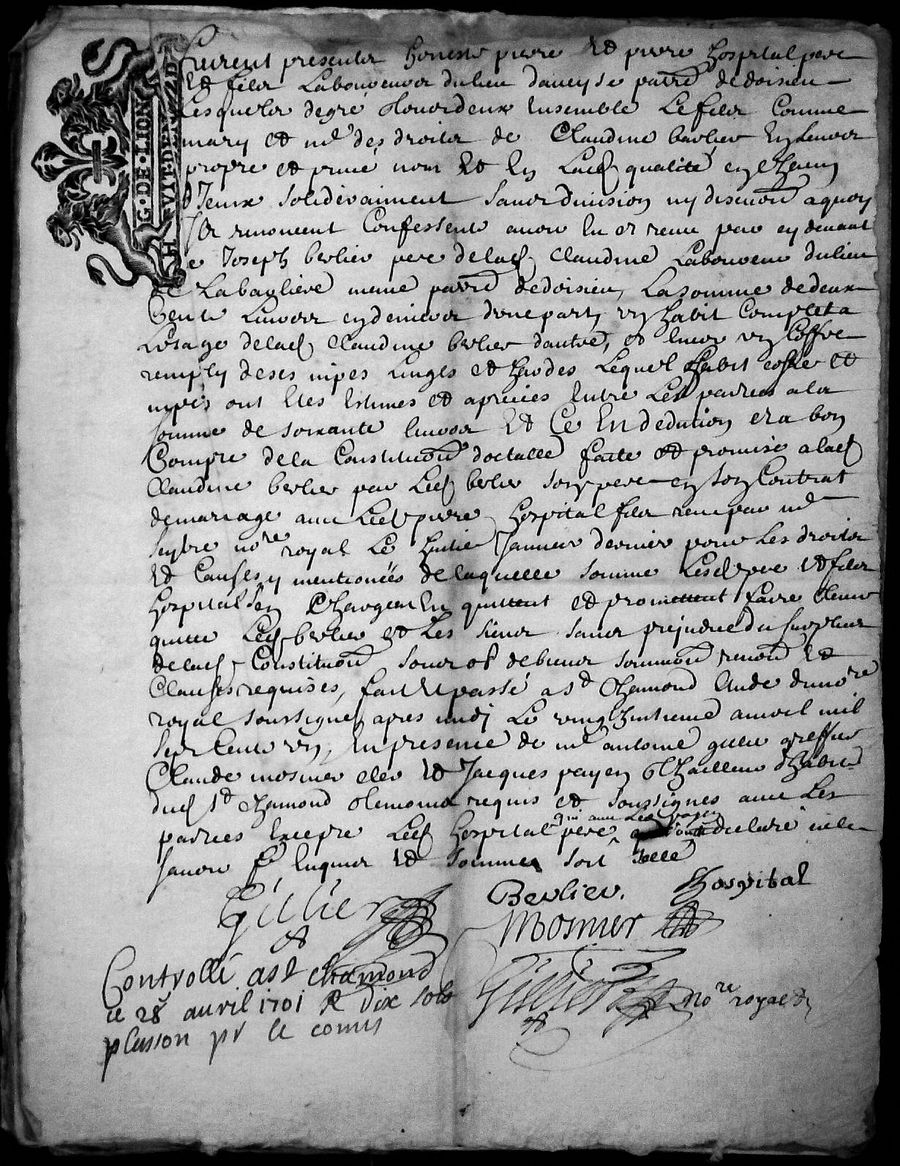 G·DE·LION
HVIT·DEN
furent presents honeste pierre Et pierre hospital pere
Et fils Laboureurs du lieu daveyse parre dedoisieu
Lesquels degre Ensemble Le fils Comme
mary et me des droits de Claudine berlier Ensenom
propre et privé nom Et En Lad qualité
solidérairement sans division ny a quoy
Ils renoncent Confessent avoir Eu et receu par cydevant
de Joseph berlier pere delad Claudine Laboureur dulieu
de Labaglière meme parre dedoisieu, La somme de deux
Cents Livres en deniers dune part, un habit Complet a
Lusage delad Claudine berlier dautre, et encor un Coffre
remply de ses nipes Linges et hardes Lequel habit coffre et
nipes ont Etes Estimes et apreciés Entre Les parties a la
somme de soixante livres Et Ce En dedution et a bon
Compte de la Constitution doctalle faite et promise a lad
Claudine berlier par Led berlier son pere en son Contrat
demariage avec Led pierre hospital fils receu par me
nore royal Le huitie Janvier dernier pour Les droits
Et Causes y mentionées de laquelle somme Lesd pere Et fils
hospital Sen Chargeant En quittent et promettent faire tenir
quitte Led berlier et Les siens sans prejudice du surplus
delad Constitution sous obl de biens soummon renon Et
Clauses requises, fait Et passé a St Chamond Etude du nore
royal soussigné apres midi Le vingthuitieme avril mil
sept Cents un, En presence de me antoine gillier greffier
Claude mosnier clerc Et Jacques payen tailleur dhabits
dud St Chamond temoins requis et soussignés avec Les
parties Excepte Led hospital pere qui avec Led payen ont declaré ne le
savoir de Enquis Et sommes
Gillier
Berlier. Hospital
Mosnier
Controllé a St chamond
le 28 avril 1701 R dix sols
plasson pr le comis
Gillier nore royal